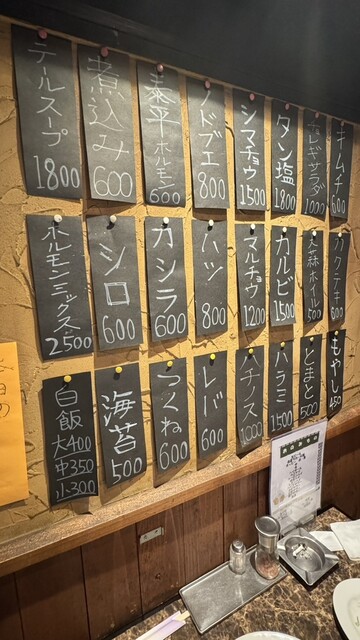 キムチ 600
チョレギサラダ 1000
タン塩 1800
シマチョウ 1500
ノドブエ 800
泰平ホルモン 600
煮込み 600
テールスープ 1800
カクテキ 600
大蒜ホイル 500
カルビ 1500
マルチョウ 1200
ハツ 800
カシラ 600
シロ 600
ホルモンミックス 2500
もやし 450
とまと 500
ハラミ 1500
ハチノス 1000
レバ 600
つくね 600
海苔 500
白飯
大400
中350
小300